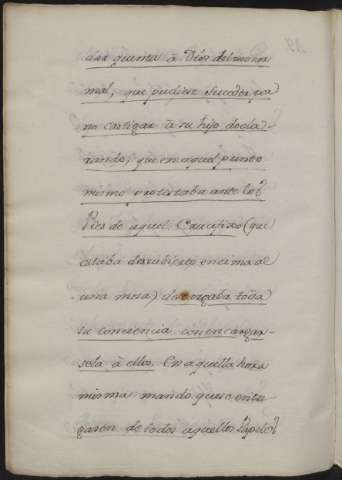 dar quenta à Dios del menor
mal, que pudiese suceder por
no castigar à su hijo decla-
rando, que en aquel punto
mismo protestaba ante los
Pies de aquel Crucifixo (que
estaba descubierto encima de
una mesa) descargaba toda
su conciencia con encargar-
sela à ellos. En aquella hora
misma mandò que se entre
gasen de todos aquellos Papeles